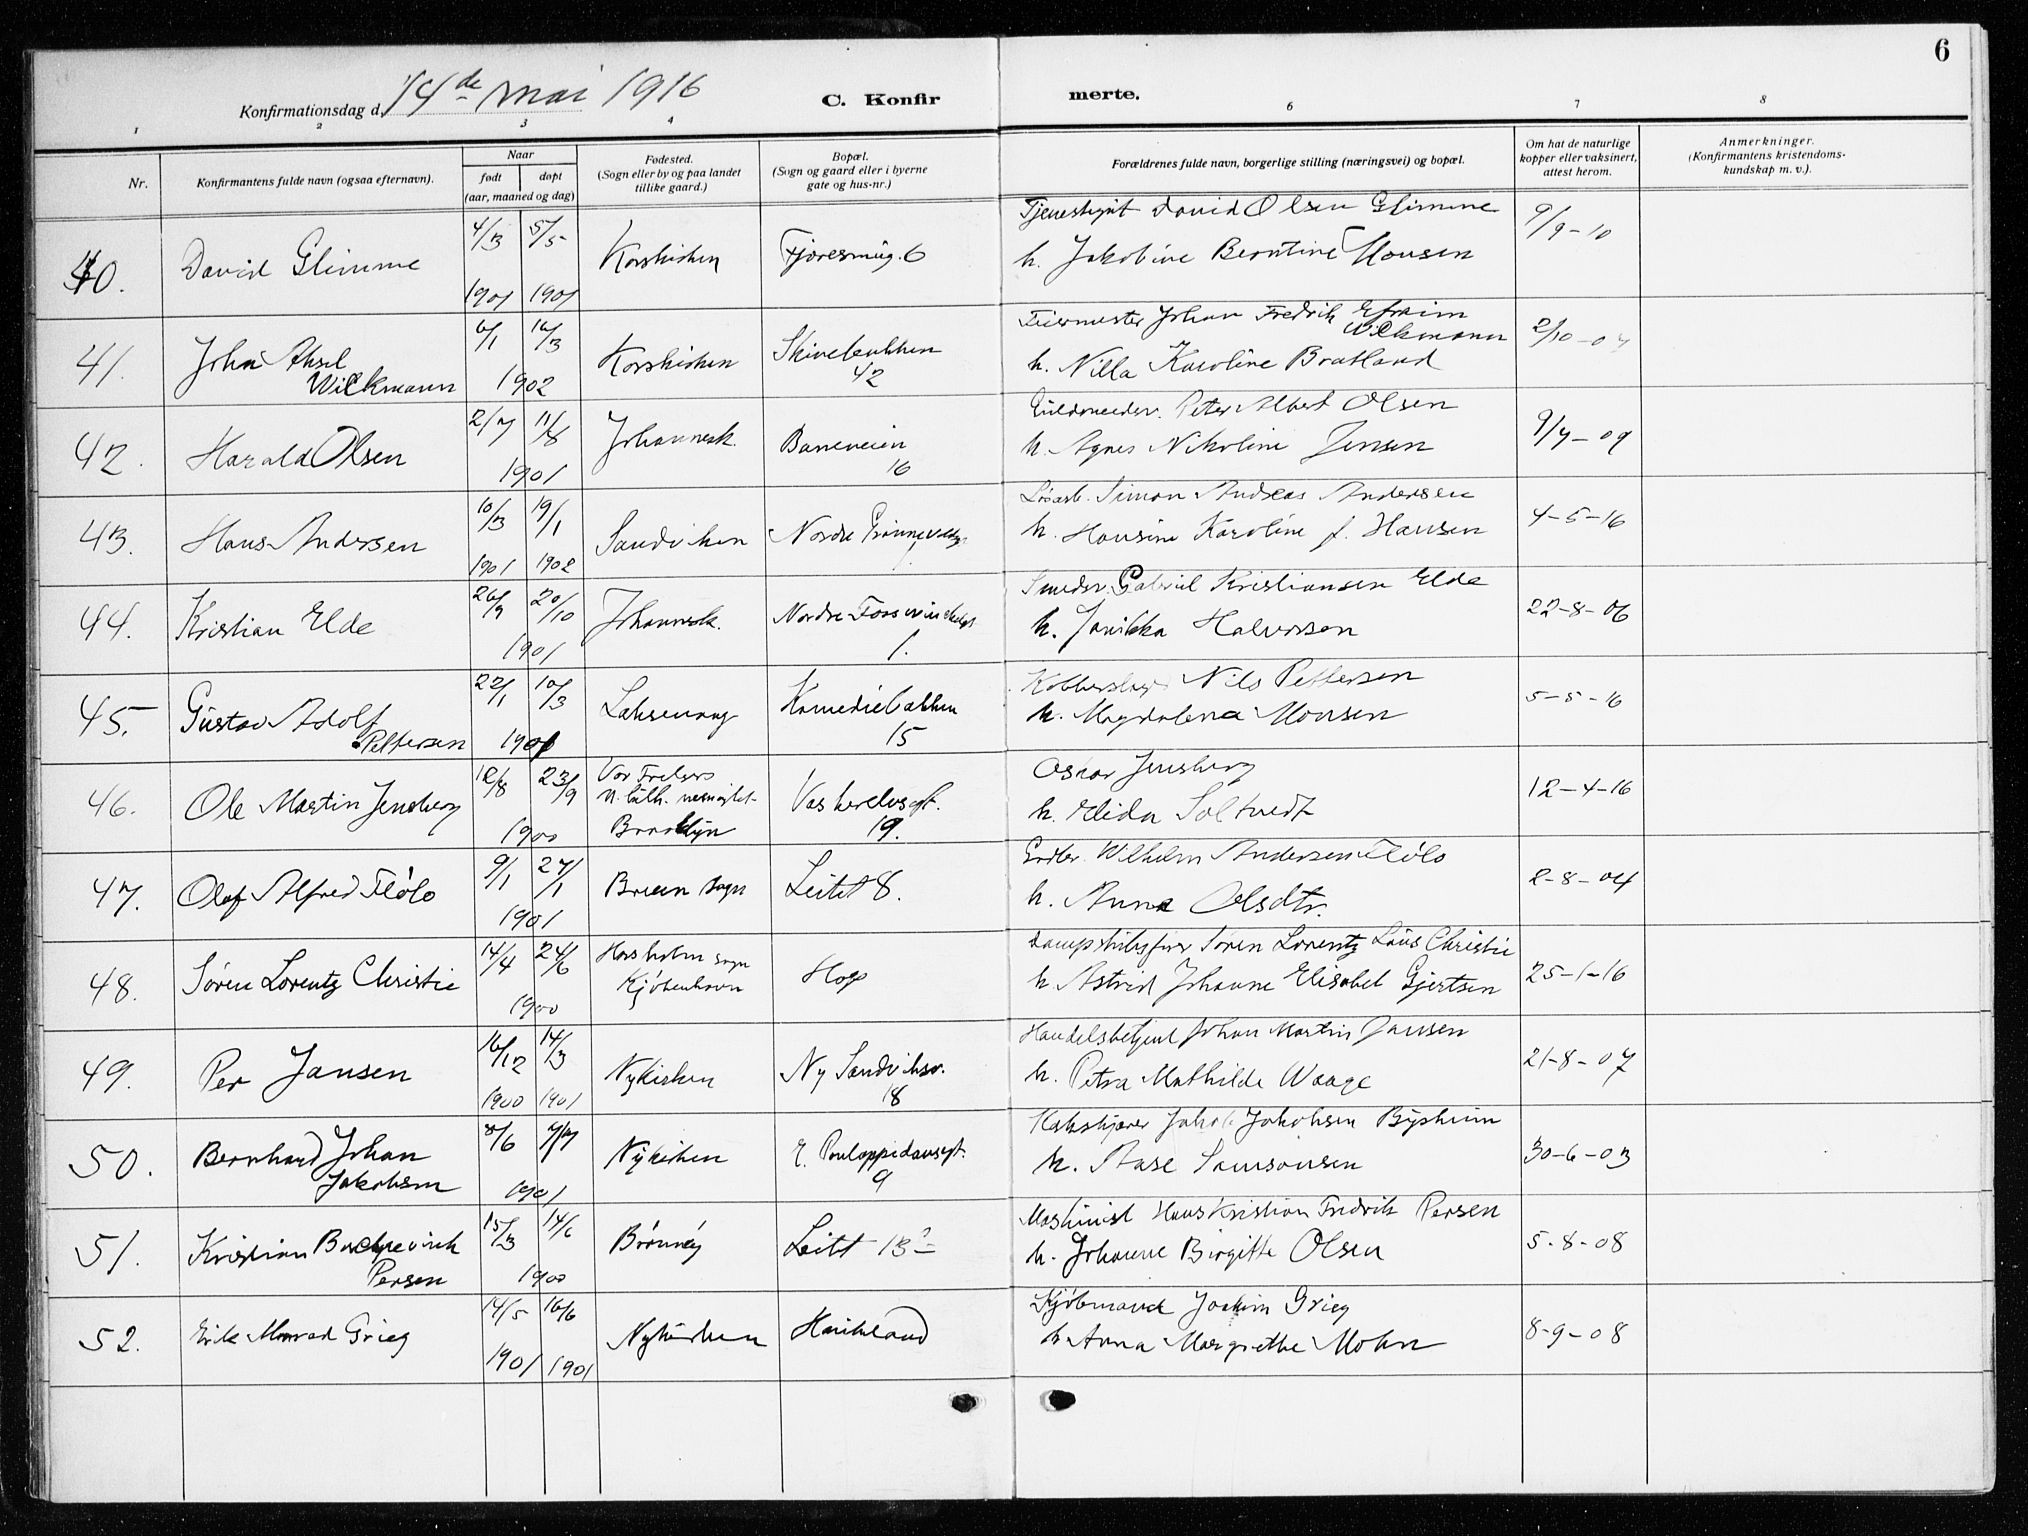 6
Konfirmationsdag d. 14de mai 1916
C. Konfirmerte.
1 2 3 4 6 7 8
Nr.
Konfirmantens fulde navn (ogsaa efternavn).
Naar
født døpt
(aar, maaned og dag)
Fødested.
(Sogn eller by og paa landet
tillike gaard.)
Bopæl.
(Sogn og gaard eller i byerne
gate og hus-nr.)
Forældrenes fulde navn, borgerlige stilling (næringsvei) og bopæl.
Om hat de naturlige
kopper eller vaksinert,
attest herom.
Anmerkninger.
(Konfirmantens kristendoms-
kundskap m. v.).
40. David Glimme 4/3 1901 5/5 1901 Korskirken Fjøresmug. 6
David Olsen Glimme
h. Jakobine Berntine Monsen
9/9-10
41. John Aksel
Wilckmann
6/1 16/3 1902 Korskirken Skivebakken
42
Feiermester Johan Fredrik Efraim
Wilckmann
h. Nilla Karoline Bratland
2/10-07
42. Harald Olsen 2/7 11/8 1901 Johannesk. Baneveien
16
Guldsmedsv. Peter Albert Olsen
h. Agnes Nikoline Jensen
9/7-09
43. Hans Andersen 10/3 1901 19/1 1902 Sandviken Nordre
Løsarb. Simon Andreas Andersen
h. Hansine Karoline f. Hansen
4-5-16
44. Kristian Elde 26/9 20/10 1901 Johannesk. Nordre Fosswinckelgt
1.
Smedsv. Gabriel Kristiansen Elde
h. Janikka Halvorsen
22-8-06
45. Gustav Adolf
Pettersen
22/1 10/3 1901 Laksevaag Komediebakken
15
Kobberslag. Nils Pettersen
h. Magdalena Monsen
5-5-16
46. Ole Martin Jensberg 12/8 23/9 1900 Vor Frelsers
n. luth. menighet
Brooklyn
Vaskerelvsgt.
19.
Oskar Jensberg
h. Elida Soltvedt
12-4-16
47. Olaf Alfred Flølo 9/1 27/1 1901 Breen sogn Leitet 8.
Grdbr. Wilhelm Andersen Flølo
h. Anna Olsdtr.
2-8-04
48. Søren Lorentz Christie 14/4 24/6 1900 sogn
Kjøbenhavn
Hop
Dampskibsfører Søren Lorentz Laus Christie
h. Astrid Johanne Elisabet Gjertsen
25-1-16
49. Per Jansen 16/12 1900 14/3 1901 Nykirken Ny Sandviksv.
18
Handelsbetjent Johan Martin Jansen
h. Petra Mathilde Waage
21-8-07
50. Bernhard Johan
Jakobsen
8/6 7/7 1901 Nykirken
9
Jakob Jakobsen Bysheim
h. Aase Samsonsen
30-6-03
51. Kristian
Persen
15/3 14/6 1900 Brønnøy Leitet 13
Maskinist Hans Kristian Fredrik Persen
h. Johanne Birgitte Olsen
5-8-08
52. Erik Monrad Grieg 14/5 1901 16/6 1901 Nykirken Haukeland
Kjøbmand Joakim Grieg
h. Anna Margrethe Mohn
8-9-08